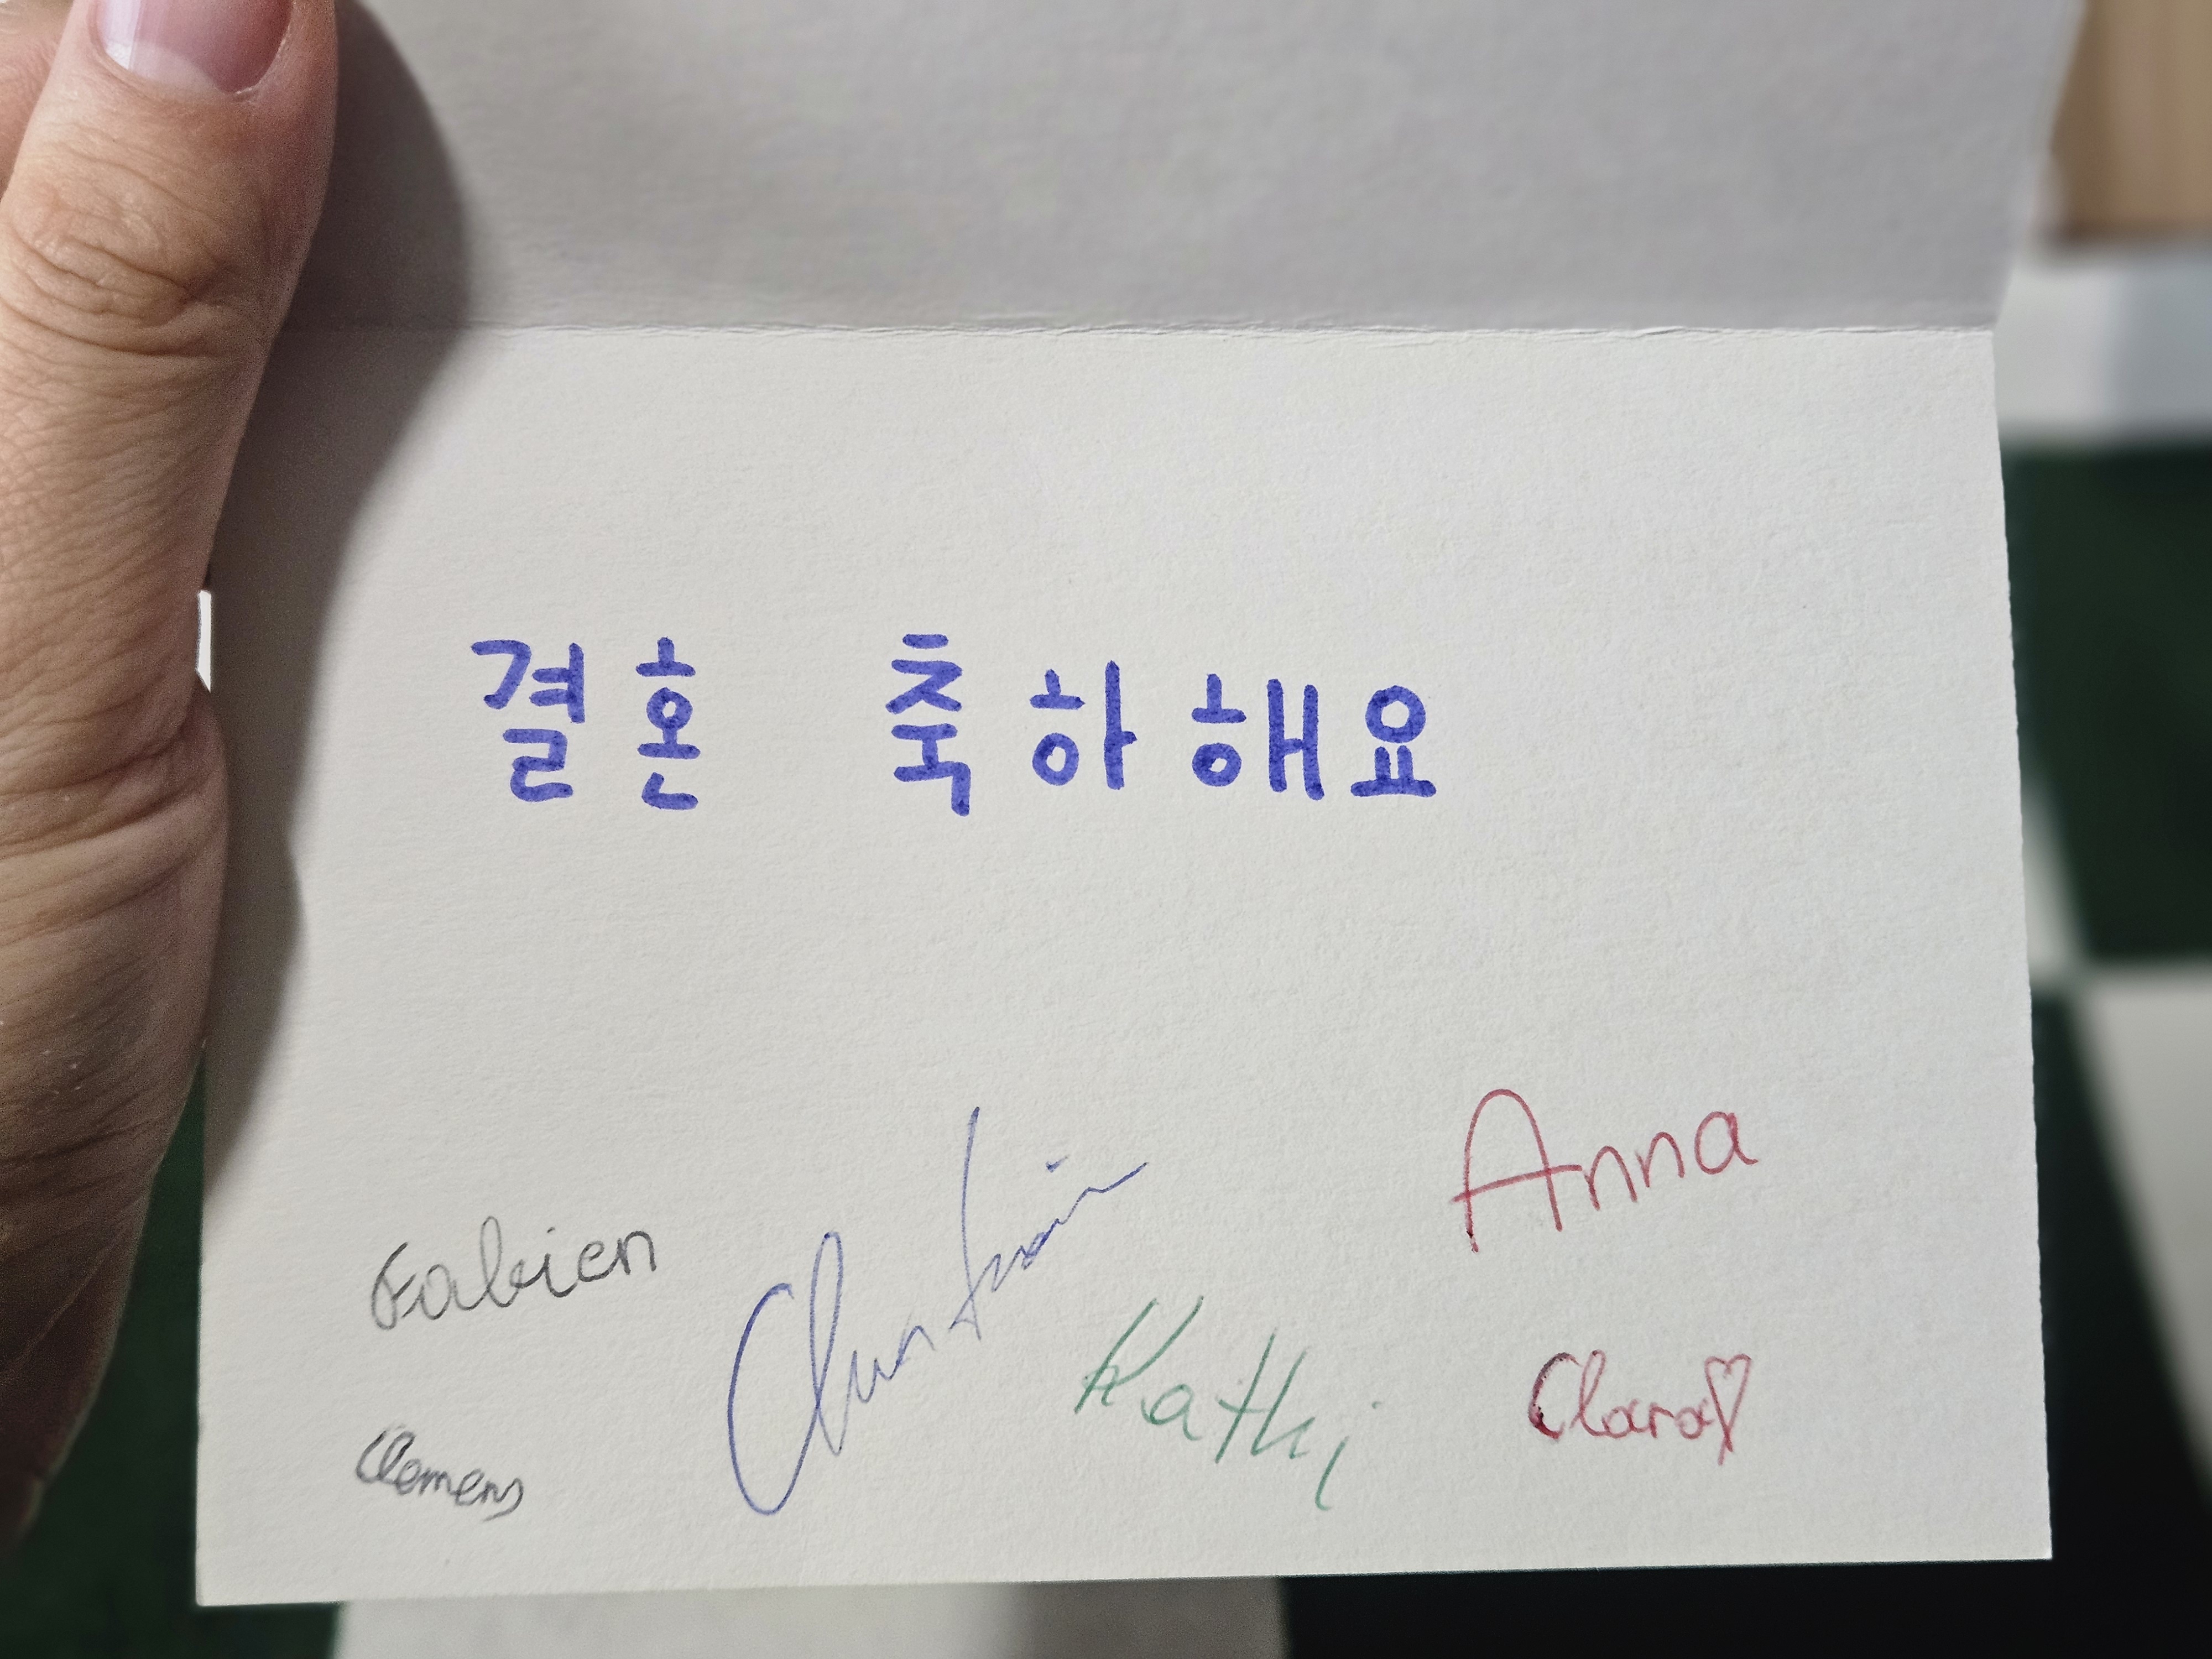 결혼 축하해요
Anna
Fabien
Christian
Kathi
Clara♡
Clemens